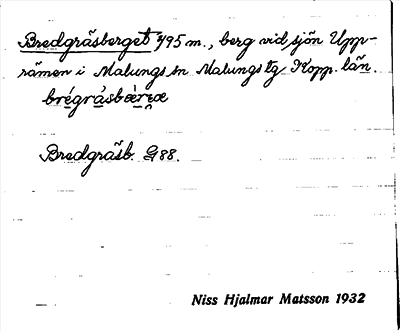 Bredgräsberget 495 m., berg vid sjön Upp-
rämen i Malungs sn Malungs tg Kopp. län.
brégrásbæ̀re̯æ
Bredgräsb. G88.
Niss Hjalmar Matsson 1932